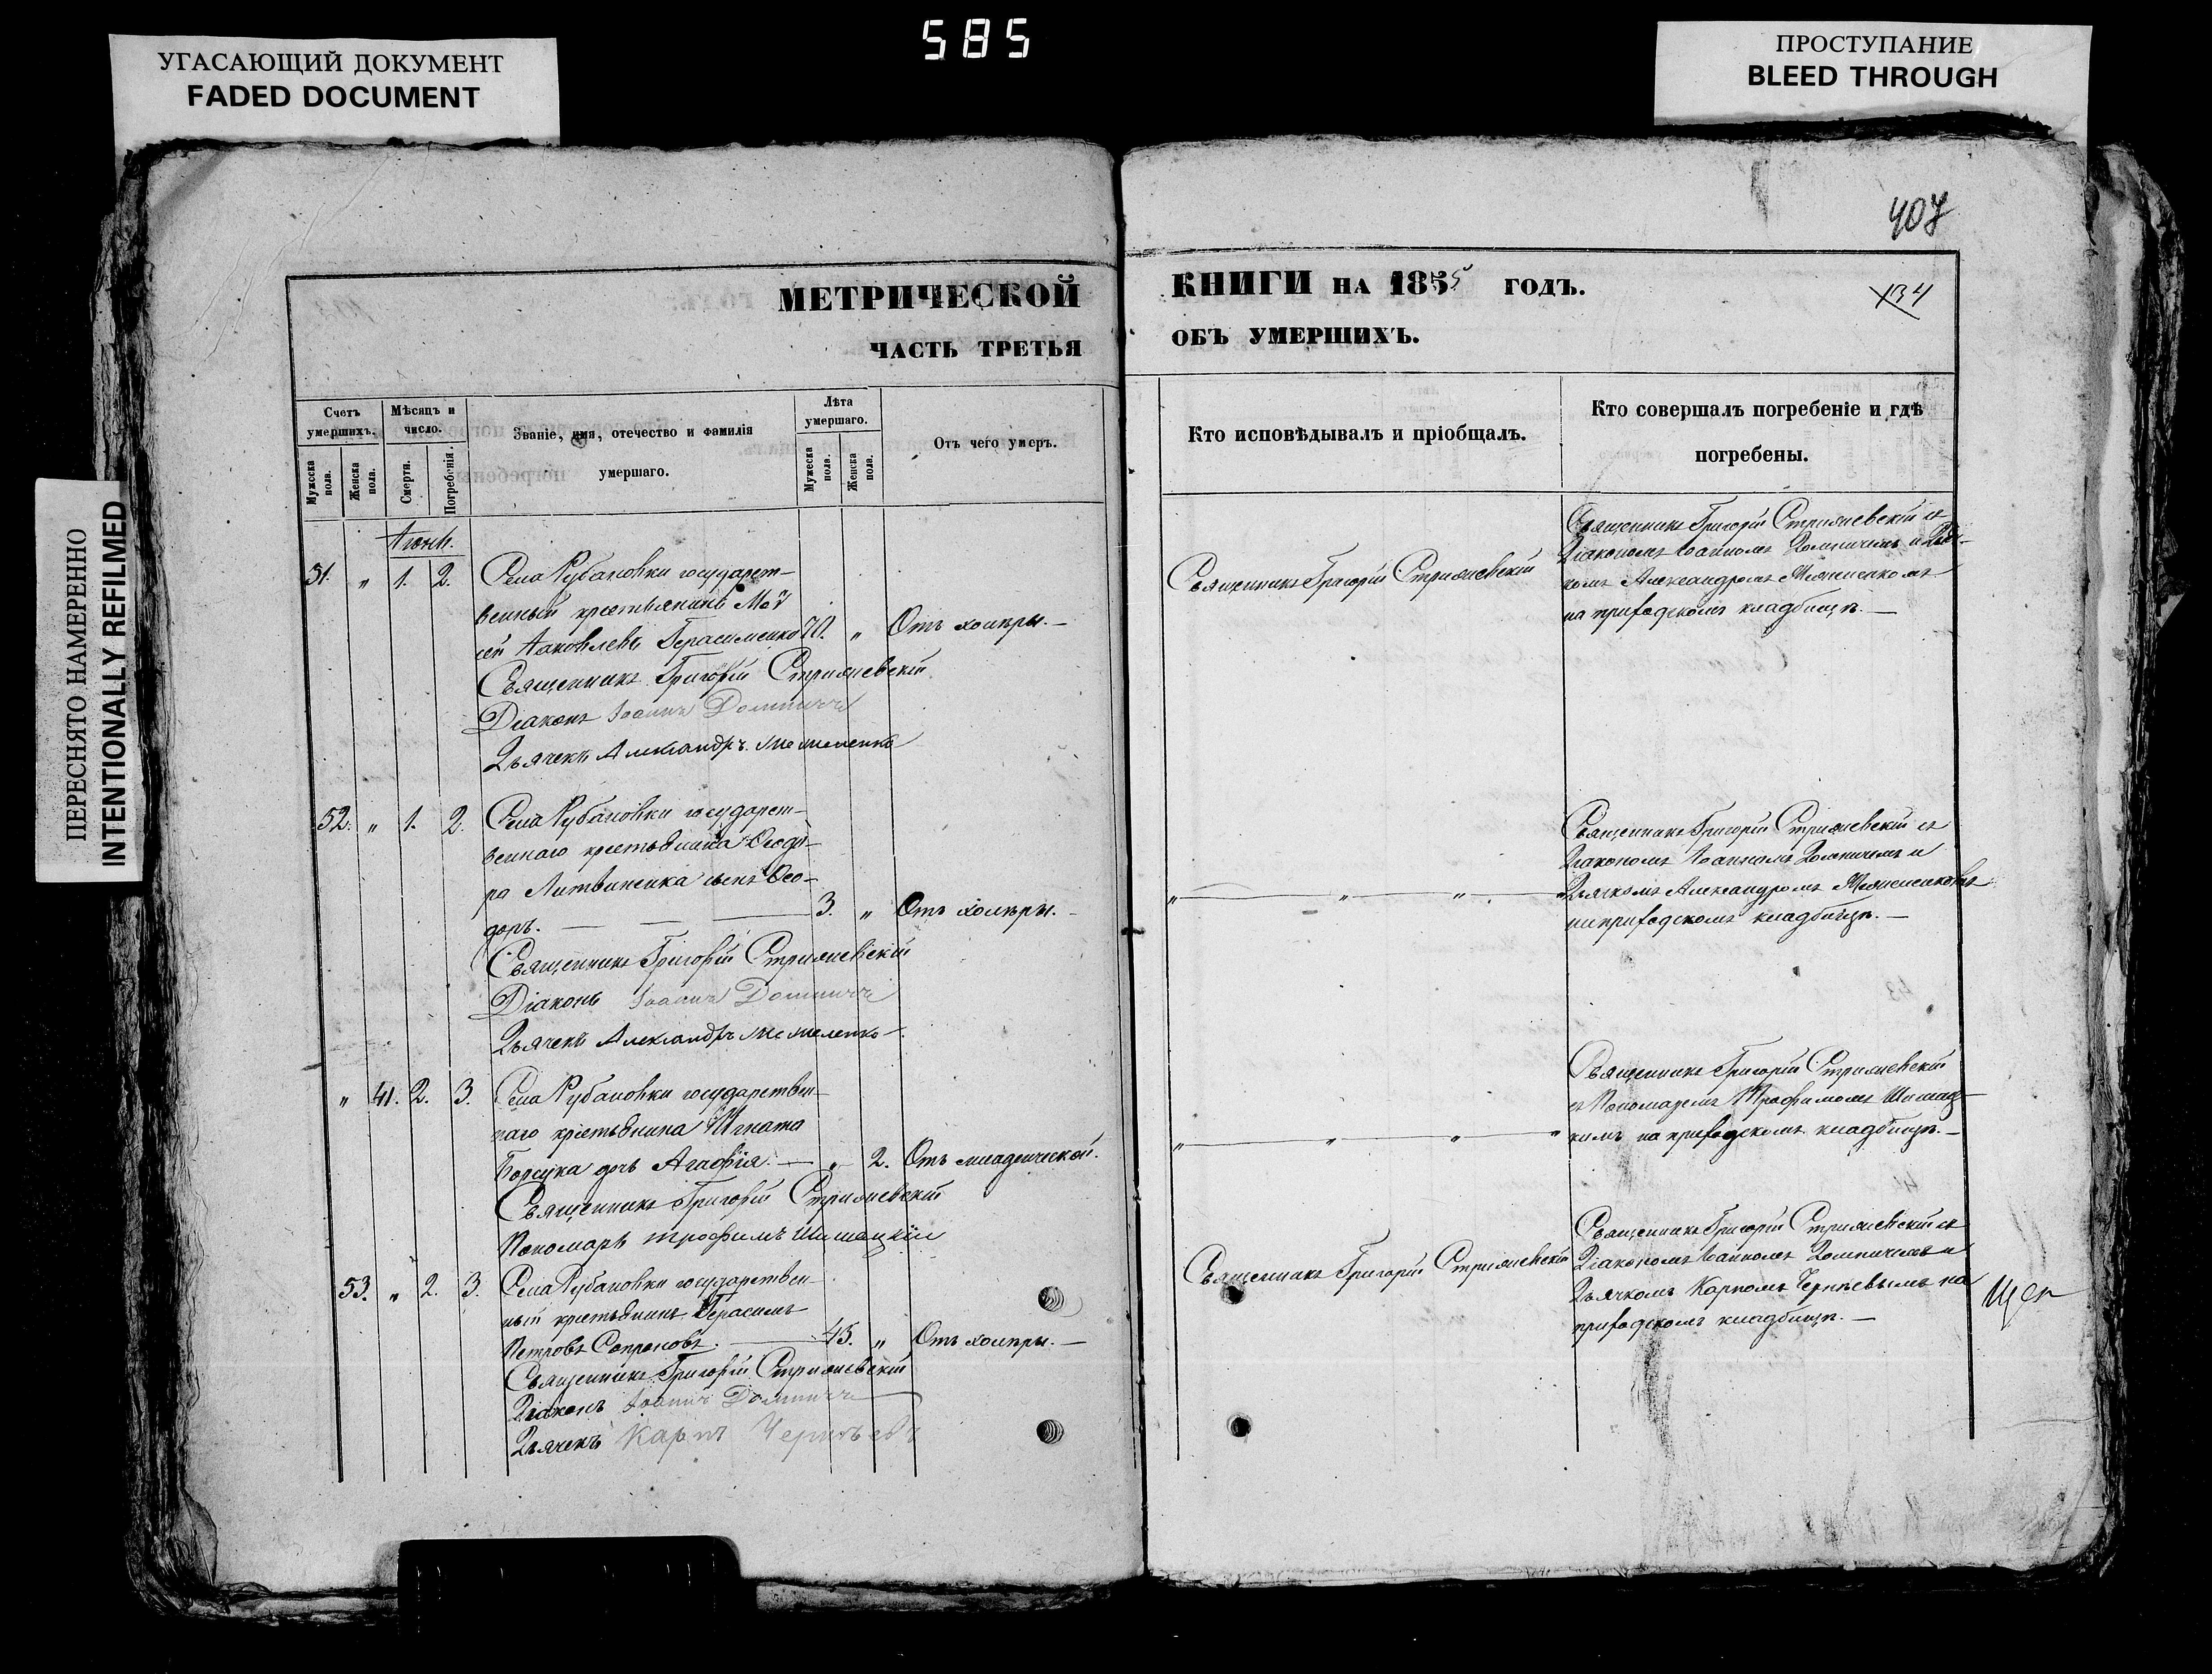 585
УГАСАЮЩИЙ ДОКУМЕНТ
FADED DOCUMENT
ПРОСТУПАНИЕ
BLEED THROUGH
ПЕРЕСНЯТО НАМЕРЕННО
INTENTIONALLY REFILMED
407
134
МЕТРИЧЕСКОЙ
ЧАСТЬ ТРЕТЬЯ
КНИГИ НА 1855 ГОДЪ.
ОБЪ УМЕРШИХЪ.
Счетъ умершихъ.
Мужеска пола.
Женска пола.
Мѣсяцъ и число.
Смерти.
Погребенія.
Званіе, имя, отечество и фамилія
умершаго.
Лѣта умершаго.
Мужеска пола.
Женска пола.
Отъ чего умеръ.
Кто исповѣдывалъ и пріобщалъ.
Кто совершалъ погребеніе и гдѣ
погребены.
51. " 1. 2. Села Рубановки государст-
венный крестьянинъ Мо
сей Яковлевъ Герасименко 70. " Отъ холеры.
Священникъ Григорій Стрижевскій
Діаконъ Іоаннъ Домничъ
Дьячекъ Александръ
Священникъ Григорій Стрижевскій
Священникъ Григорій Стрижевскій съ
Діакономъ Іоанномъ Домничемъ и Дья-
комъ Александромъ
на приходскомъ кладбищѣ.
52. " 1. 2. Села Рубановки государст-
веннаго крестьянина Ѳеодо-
ра Литвиненка сынъ Ѳео-
доръ. 3. " Отъ холеры.
Священникъ Григорій Стрижевскій
Діаконъ Іоаннъ Домничъ
Дьячекъ Александръ
" " " "
Священникъ Григорій Стрижевскій съ
Діакономъ Іоанномъ Домничемъ и
Дьячкомъ Александромъ
на приходскомъ кладбищѣ.
" 41. 2. 3. Села Рубановки государствен-
наго крестьянина Игната
Борсука дочь Агафія. " 2. Отъ младенческой.
Священникъ Григорій Стрижевскій
Пономарь Трофимъ Шишацкій
" " " "
Священникъ Григорій Стрижевскій
съ Пономаремъ Трофимомъ Шишац-
кимъ на приходскомъ кладбищѣ.
53. " 2. 3. Села Рубановки государствен-
ный крестьянинъ Герасимъ
Петровъ Сопроновъ. 45. " Отъ холеры.
Священникъ Григорій Стрижевскій
Діаконъ Іоаннъ Домничъ
Дьячекъ Карпъ Чернѣевъ
Священникъ Григорій Стрижевскій
Священникъ Григорій Стрижевскій съ
Діакономъ Іоанномъ Домничемъ и
Дьячкомъ Карпомъ Чернѣевымъ на
приходскомъ кладбищѣ.